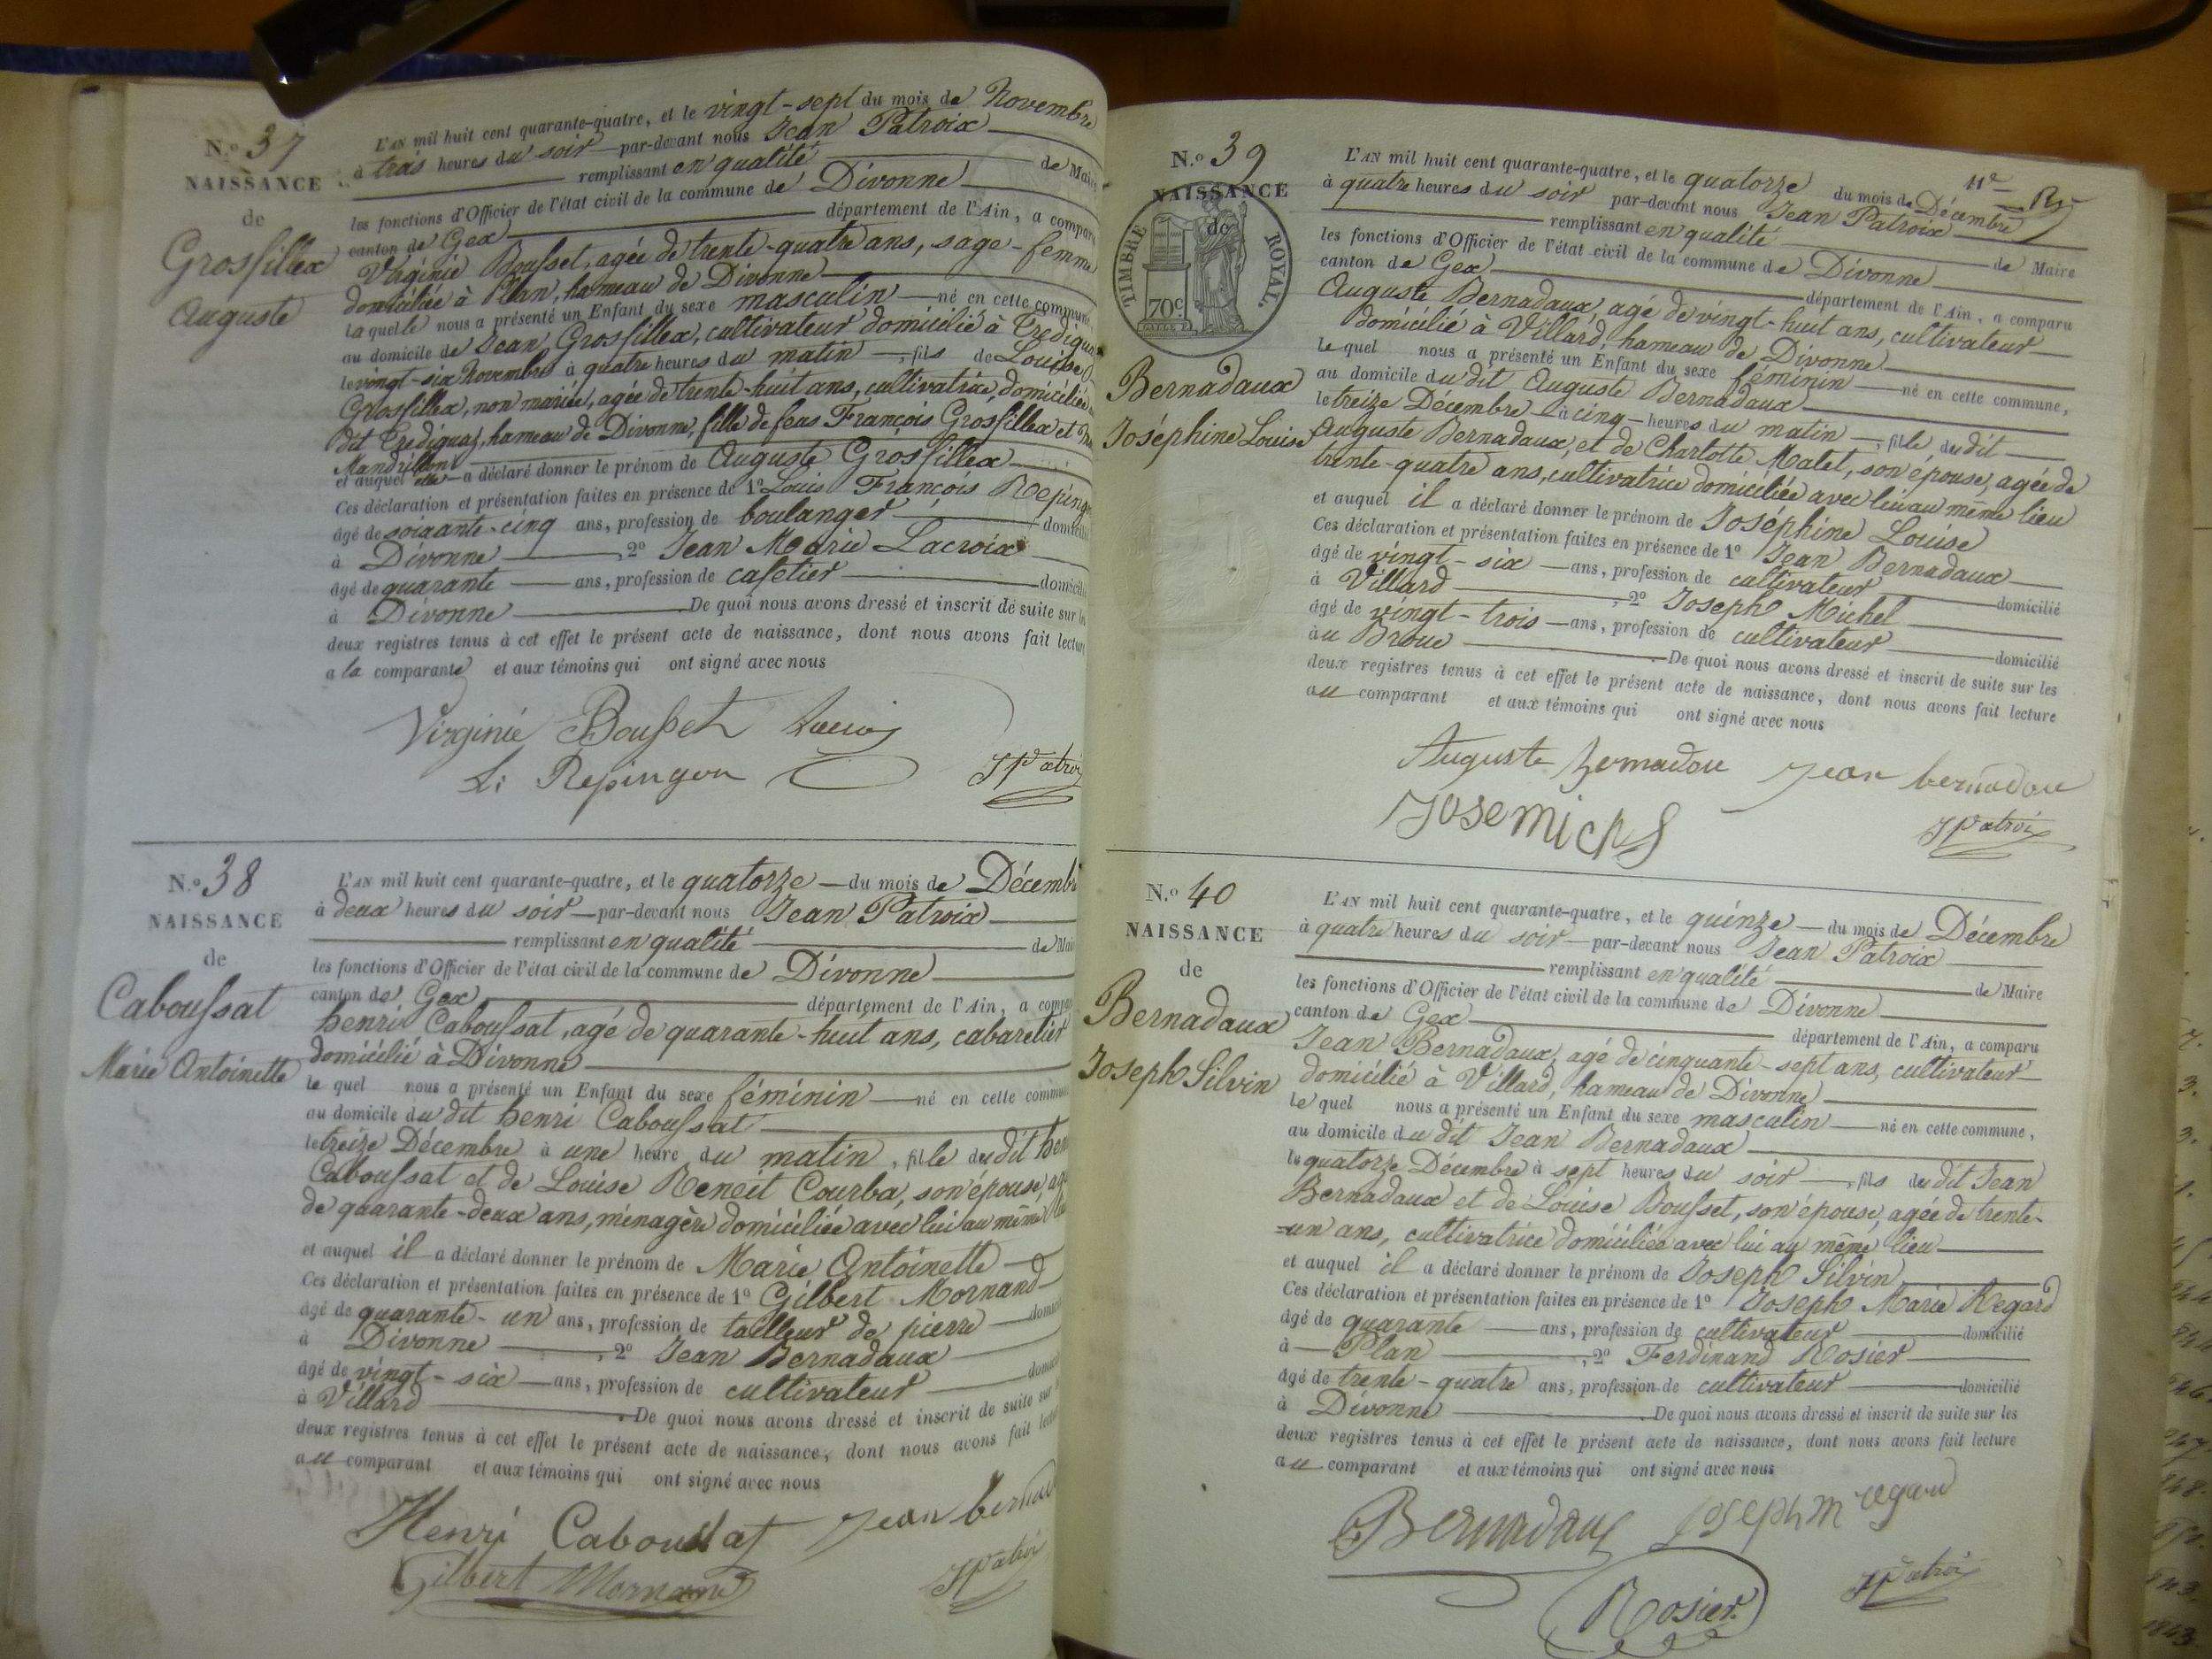 N.o 37
NAISSANCE
de
Grosfillex
Auguste
L'AN mil huit cent quarante-quatre, et le vingt-sept du mois de Novembre
à trois heures du soir — par-devant nous Jean Patroix
remplissant en qualité de Maire
les fonctions d'Officier de l'état civil de la commune de Divonne
canton de Gex département de l'Ain, a comparu
Virginie Bousset, agée de trente-quatre ans, sage-femme
domiciliée à Plan, hameau de Divonne
laquelle nous a présenté un Enfant du sexe masculin — né en cette commune,
au domicile de Jean Grosfillex, cultivateur domicilié à
le vingt-six Novembre à quatre heures du matin —, fils de Louise
Grosfillex, non mariée, agée de trente-huit ans, cultivatrice, domiciliée
dit hameau de Divonne, fille de feus François Grosfillex et
Mandrillon
et auquel elle — a déclaré donner le prénom de Auguste Grosfillex
Ces déclaration et présentation faites en présence de 1o Louis François
âgé de soixante-cinq ans, profession de boulanger
à Divonne, 2o Jean Marie Lacroix
âgé de quarante ans, profession de cafetier
à Divonne De quoi nous avons dressé et inscrit de suite sur les
deux registres tenus à cet effet le présent acte de naissance, dont nous avons fait lecture
a la comparante et aux témoins qui ont signé avec nous
Virginie Bousset
L: Repingon JPatroix
N.o 38
NAISSANCE
de
Caboussat
Marie Antoinette
L'AN mil huit cent quarante-quatre, et le quatorze — du mois de Décembre
à deux heures du soir — par-devant nous Jean Patroix
remplissant en qualité de Maire
les fonctions d'Officier de l'état civil de la commune de Divonne
canton de Gex département de l'Ain, a comparu
henri Caboussat, agé de quarante-huit ans, cabaretier
domicilié à Divonne
le quel nous a présenté un Enfant du sexe féminin — né en cette commune
au domicile du dit henri Caboussat
le treize Décembre à une heure du matin, fille du dit henri
Caboussat et de Louise Benoit Courbe, son épouse, agée
de quarante-deux ans, ménagère domiciliée avec lui au même lieu
et auquel il a déclaré donner le prénom de Marie Antoinette
Ces déclaration et présentation faites en présence de 1o Gilbert Mornand
âgé de quarante-un ans, profession de tailleur de pierre
à Divonne, 2o Jean Bernadaux
âgé de vingt-six — ans, profession de cultivateur
à Villard De quoi nous avons dressé et inscrit de suite sur
deux registres tenus à cet effet le présent acte de naissance, dont nous avons fait lecture
au comparant et aux témoins qui ont signé avec nous
Henri Caboussat Jean
Gilbert Mornand JPatroix
N.o 39
NAISSANCE
de
TIMBRE ROYAL.
70c
Bernadaux
Joséphine Louise
L'AN mil huit cent quarante-quatre, et le quatorze du mois de Décembre
à quatre heures du soir par-devant nous Jean Patroix
remplissant en qualité de Maire
les fonctions d'Officier de l'état civil de la commune de Divonne
canton de Gex département de l'Ain, a comparu
Auguste Bernadaux, agé de vingt-huit ans, cultivateur
domicilié à Villard, hameau de Divonne
le quel nous a présenté un Enfant du sexe féminin — né en cette commune,
au domicile du dit Auguste Bernadaux
le treize Décembre à cinq — heures du matin —, fille du dit
Auguste Bernadaux, et de Charlotte Matet, son épouse, agée de
trente-quatre ans, cultivatrice domiciliée avec lui au même lieu
et auquel il a déclaré donner le prénom de Joséphine Louise
Ces déclaration et présentation faites en présence de 1o Jean Bernadaux
âgé de vingt-six — ans, profession de cultivateur
à Villard, 2o Joseph Michel domicilié
âgé de vingt-trois — ans, profession de cultivateur
au Broue domicilié De quoi nous avons dressé et inscrit de suite sur les
deux registres tenus à cet effet le présent acte de naissance, dont nous avons fait lecture
au comparant et aux témoins qui ont signé avec nous
Auguste bernadou Jean bernadou
JPatroix
N.o 40
NAISSANCE
de
Bernadaux
Joseph Silvin
L'AN mil huit cent quarante-quatre, et le quinze — du mois de Décembre
à quatre heures du soir — par-devant nous Jean Patroix
remplissant en qualité de Maire
les fonctions d'Officier de l'état civil de la commune de Divonne
canton de Gex département de l'Ain, a comparu
Jean Bernadaux, agé de cinquante-sept ans, cultivateur
domicilié à Villard, hameau de Divonne
le quel nous a présenté un Enfant du sexe masculin — né en cette commune,
au domicile du dit Jean Bernadaux
le quatorze Décembre à sept heures du soir —, fils du dit Jean
Bernadaux et de Louise Bousset, son épouse, agée de trente-
-un ans, cultivatrice domiciliée avec lui au même lieu
et auquel il a déclaré donner le prénom de Joseph Silvin
Ces déclaration et présentation faites en présence de 1o Joseph Marie Regard
âgé de quarante — ans, profession de cultivateur domicilié
à Plan, 2o Ferdinand Rosier
âgé de trente-quatre ans, profession de cultivateur domicilié
à Divonne De quoi nous avons dressé et inscrit de suite sur les
deux registres tenus à cet effet le présent acte de naissance, dont nous avons fait lecture
au comparant et aux témoins qui ont signé avec nous
Bernadaux Joseph m regard
Rosier JPatroix